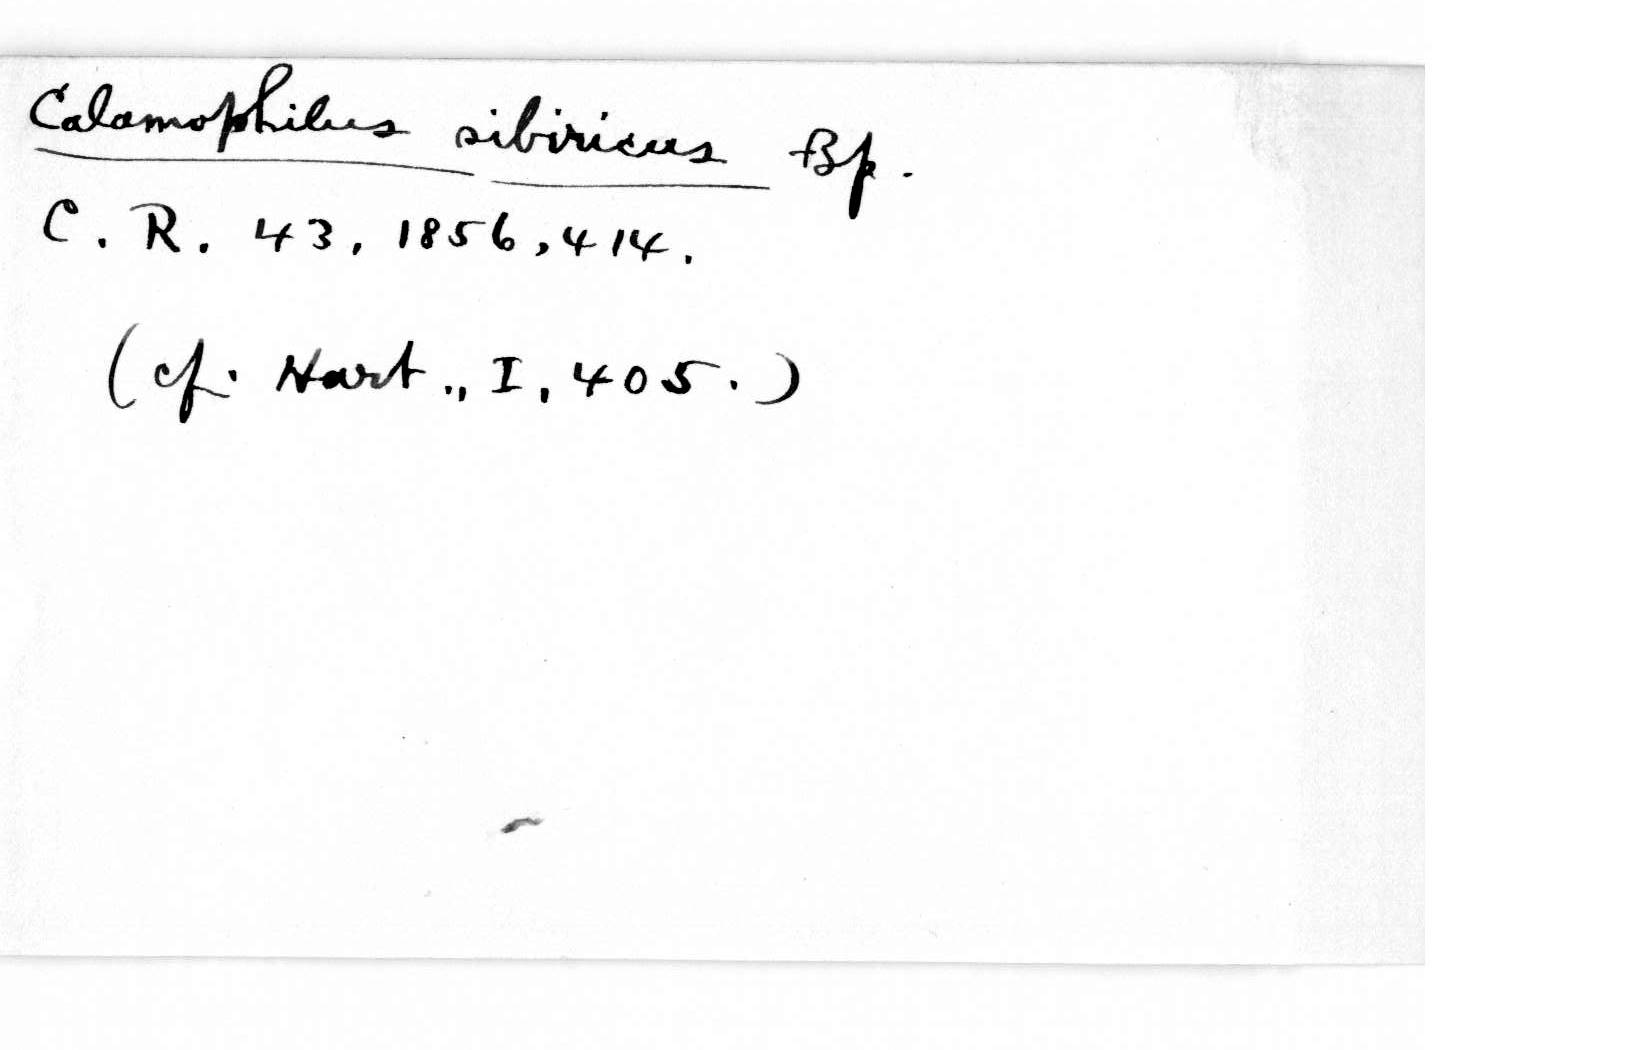 Calamophilus sibiricus Bp.
C. R. 43, 1856, 414.
(cf. Hart., I, 405.)